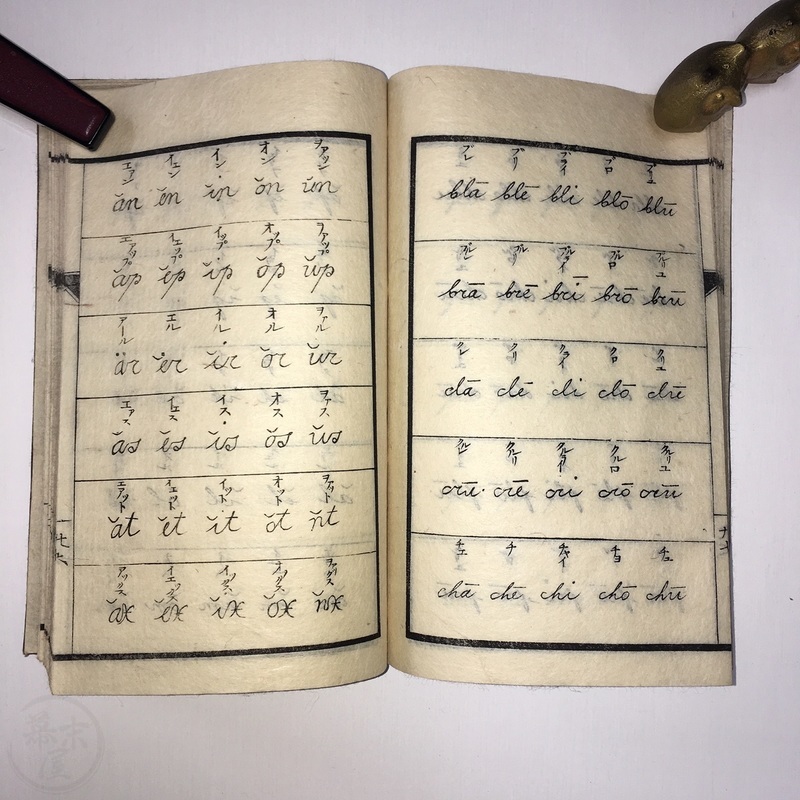 エアン イエン イン オン ヲアン
ăn ĕn ĭn ŏn ŭn
エアップ イエップ イップ オップ ヲアップ
ăp ĕp ĭp ŏp ŭp
アール エル イル オル ヲアル
är ĕr ĭr ŏr ŭr
エアス イエス イス オス ヲアス
ăs ĕs ĭs ŏs ŭs
エアット イエット イット オット ヲアット
ăt ĕt ĭt ŏt
アックス イエックス イックス オックス
ăx ĕx ĭx ŏx
ブレ ブリ ブライ ブロ ブリユ
blā blē bli blō blū
ブルレ ブルリ ブルライ ブルロ ブルリユ
brā brē brī brō brū
クレ クリ クライ クロ クリユ
clā clē cli clō
クルレ クルリ クルライ クルロ クルリユ
crē cri crō crū
チエ チ チヤイ チヨ チユ
chā chē chi chō chū